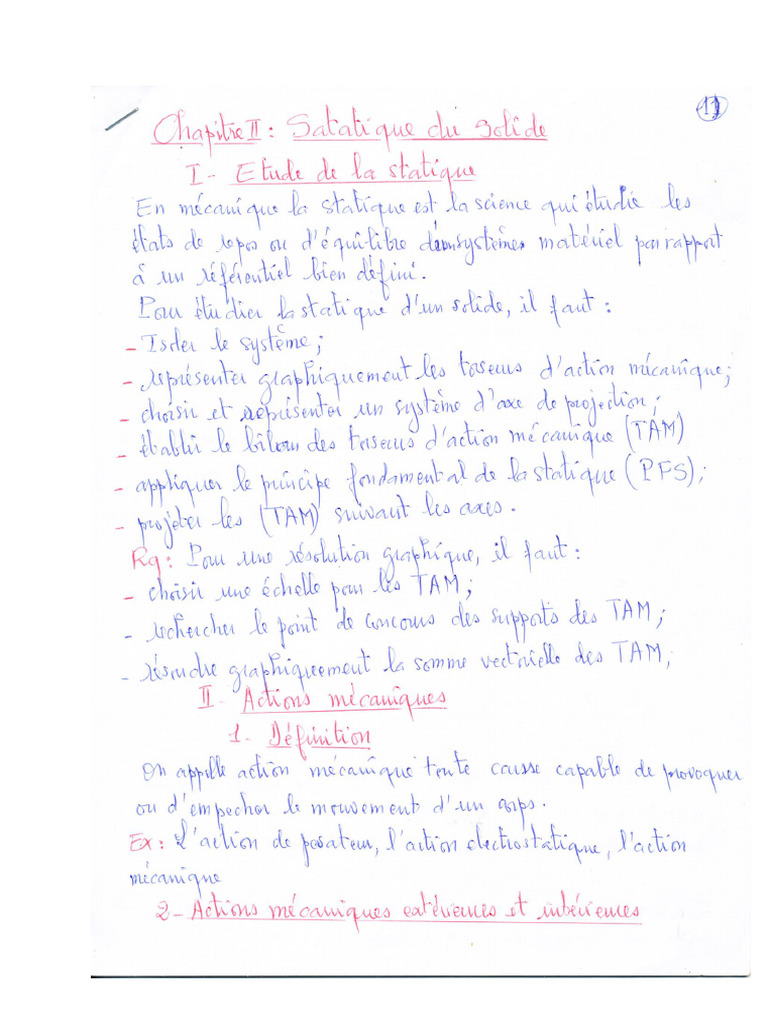 11
Chapitre II : Satatique du solide
I - Etude de la statique
En mécanique la statique est la science qui étudie les
états de repos ou d'équilibre systèmes matériel par rapport
à un référentiel bien défini.
Pour étudier la statique d'un solide, il faut :
- Isoler le système ;
- représenter graphiquement les torseurs d'action mécanique ;
- choisir et représenter un système d'axe de projection ;
- établir le bilan des torseurs d'action mécanique (TAM)
- appliquer le principe fondamental de la statique (PFS) ;
- projeter les (TAM) suivant les axes.
Rq : Pour une résolution graphique, il faut :
- choisir une échelle pour les TAM ;
- rechercher le point de concours des supports des TAM ;
- résoudre graphiquement la somme vectorielle des TAM ;
II - Actions mécaniques
1 - Définition
On appelle action mécanique toute causse capable de provoquer
ou d'empecher le mouvement d'un corps.
Ex : L'action de pesateur, l'action electrostatique, l'action
mécanique
2 - Actions mécaniques extérieures et intérieures